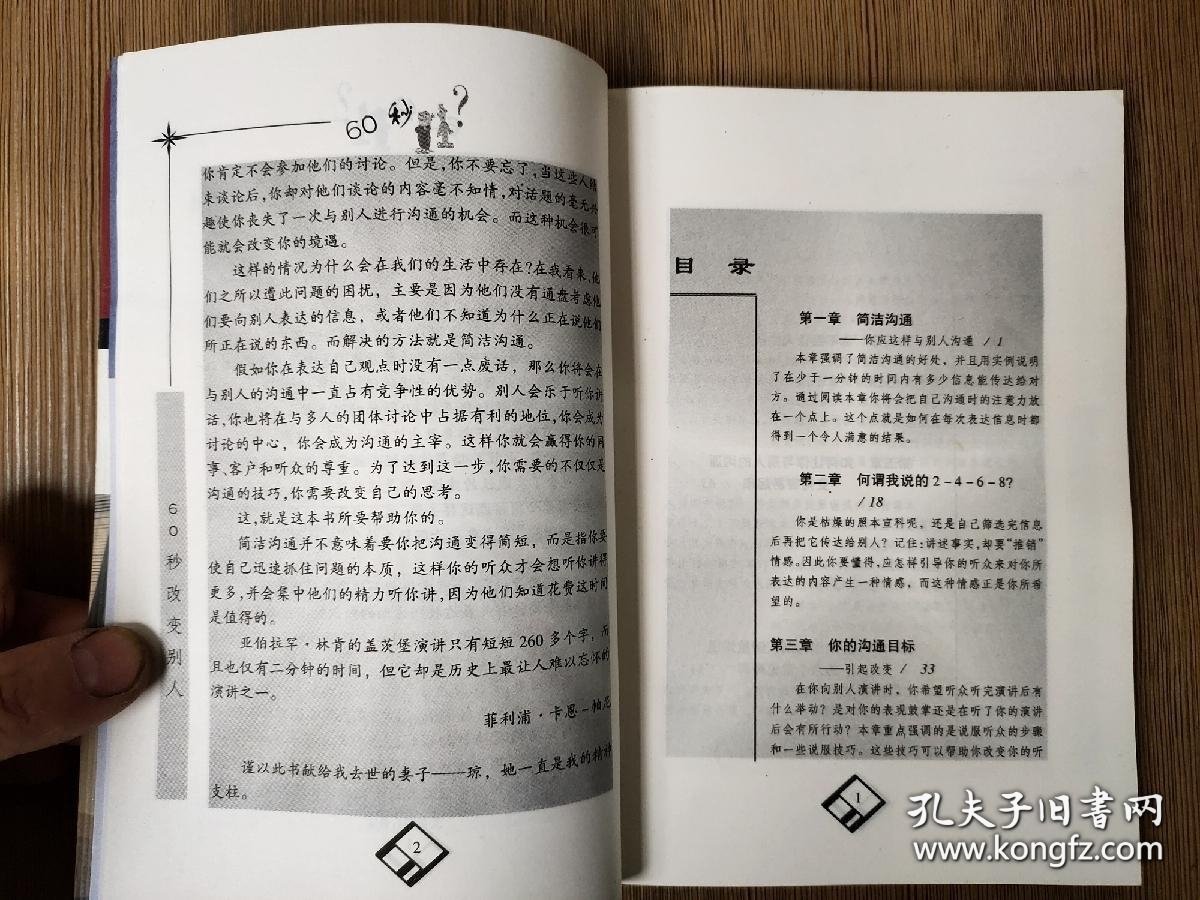 60 秒 ?
你肯定不会参加他们的讨论。但是,你不要忘了,当这些人结
束谈论后,你却对他们谈论的内容毫不知情,对话题的毫无兴
趣使你丧失了一次与别人进行沟通的机会。而这种机会很可
能就会改变你的境遇。
这样的情况为什么会在我们的生活中存在?在我看来,他
们之所以遭此问题的困扰，主要是因为他们没有通盘考虑他
们要向别人表达的信息，或者他们不知道为什么正在说他们
所正在说的东西。而解决的方法就是简洁沟通。
假如你在表达自己观点时没有一点废话，那么你将会在
与别人的沟通中一直占有竞争性的优势。别人会乐于听你讲
话,你也将在与多人的团体讨论中占据有利的地位,你会成为
讨论的中心，你会成为沟通的主宰。这样你就会赢得你的同
事、客户和听众的尊重。为了达到这一步,你需要的不仅仅是
沟通的技巧,你需要改变自己的思考。
这,就是这本书所要帮助你的。
简洁沟通并不意味着要你把沟通变得简短，而是指你要
使自己迅速抓住问题的本质，这样你的听众才会想听你讲得
更多,并会集中他们的精力听你讲,因为他们知道花费这时间
是值得的。
亚伯拉罕·林肯的盖茨堡演讲只有短短260多个字，而
且也仅有二分钟的时间，但它却是历史上最让人难以忘怀的
演讲之一。
菲利浦·卡恩-帕尼
谨以此书献给我去世的妻子——琼，她一直是我的精神
支柱。
60秒改变别人
2
目 录
第一章 简洁沟通
——你应这样与别人沟通 / 1
本章强调了简洁沟通的好处，并且用实例说明
了在少于一分钟的时间内有多少信息能传达给对
方。通过阅读本章你将会把自己沟通时的注意力放
在一个点上。这个点就是如何在每次表达信息时都
得到一个令人满意的结果。
第二章 何谓我说的2-4-6-8?
/ 18
你是枯燥的照本宣科呢，还是自己筛选完信息
后再把它传达给别人？记住:讲述事实,却要“推销”
情感。因此你要懂得,应怎样引导你的听众来对你所
表达的内容产生一种情感，而这种情感正是你所希
望的。
第三章 你的沟通目标
——引起改变 / 33
在你向别人演讲时，你希望听众听完演讲后有
什么举动？是对你的表现鼓掌还是在听了你的演讲
后会有所行动？本章重点强调的是说服听众的步骤
和一些说服技巧。这些技巧可以帮助你改变你的听
1
孔夫子旧书网
www.kongfz.com